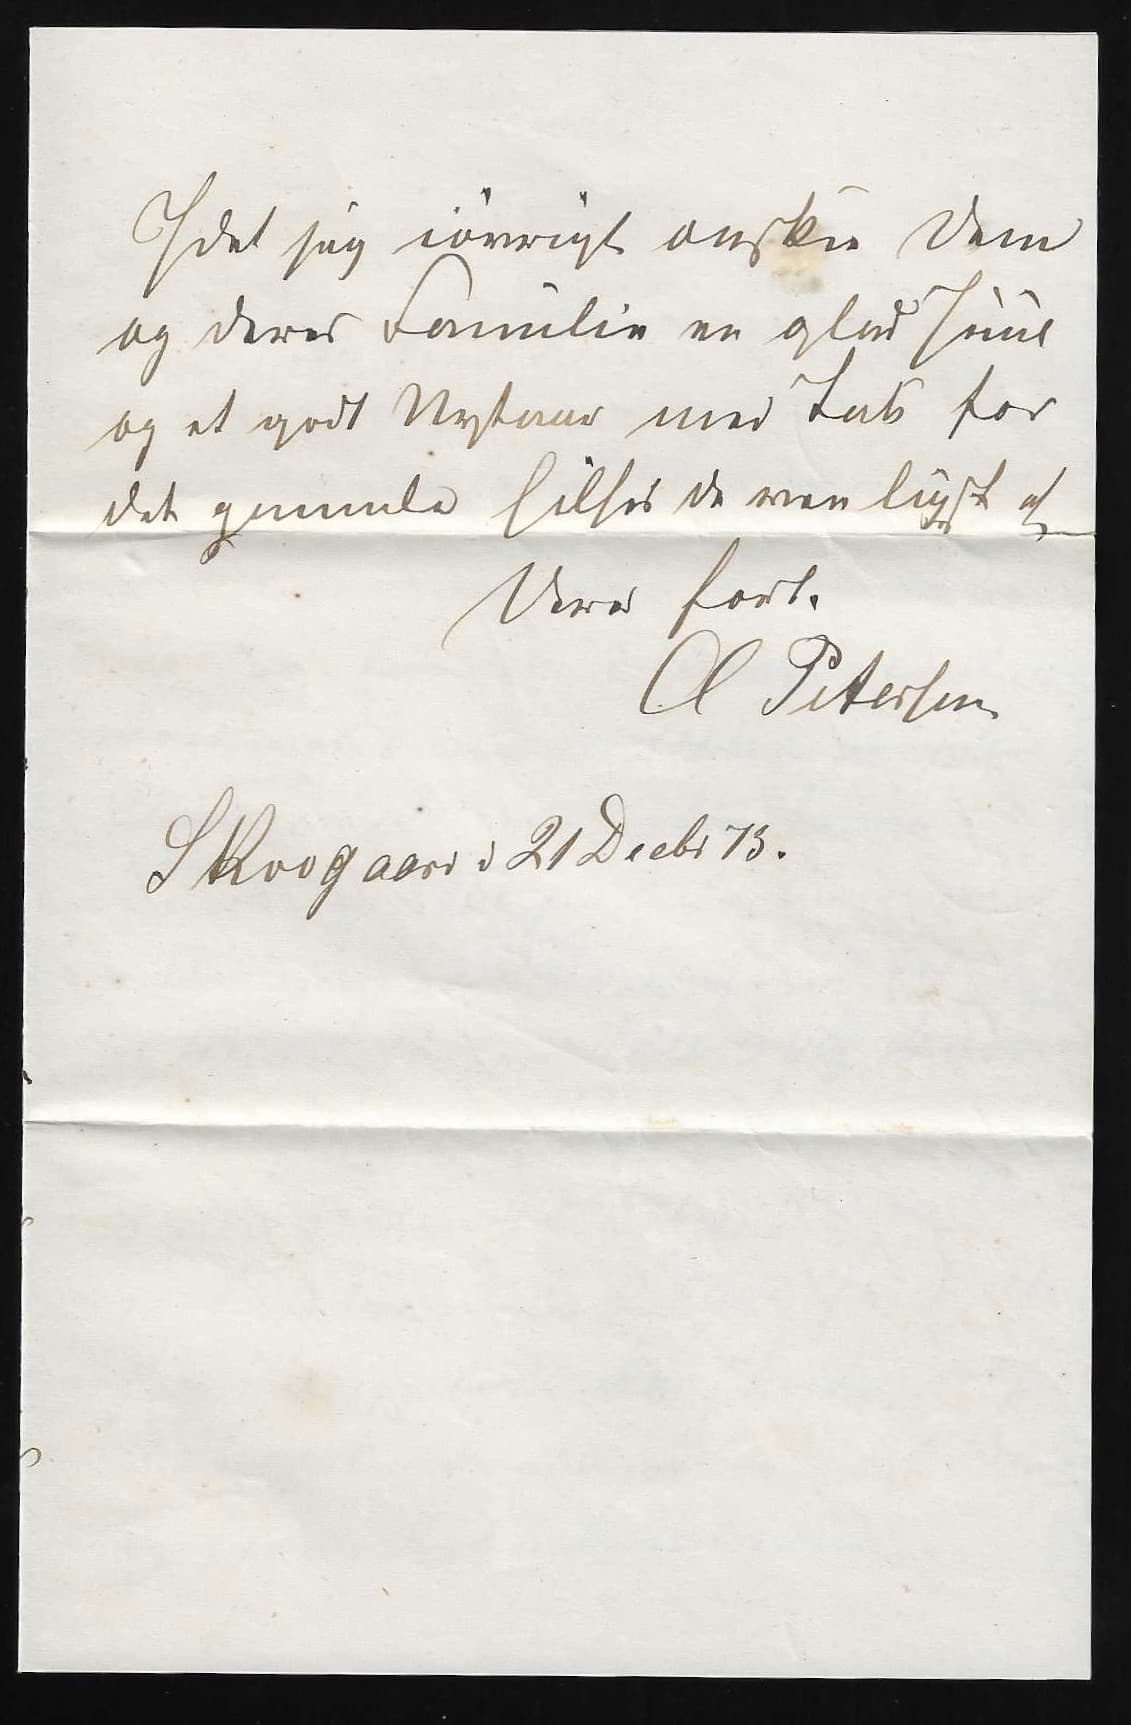 Idet jeg iövrigt onsker Dem
og deres Familie en glad Juul
og et godt Nytaar med Tak for
det gamle hilses de venligst af
Deres forb.
Petersen
Skovgaard d 21 Decbr 73.